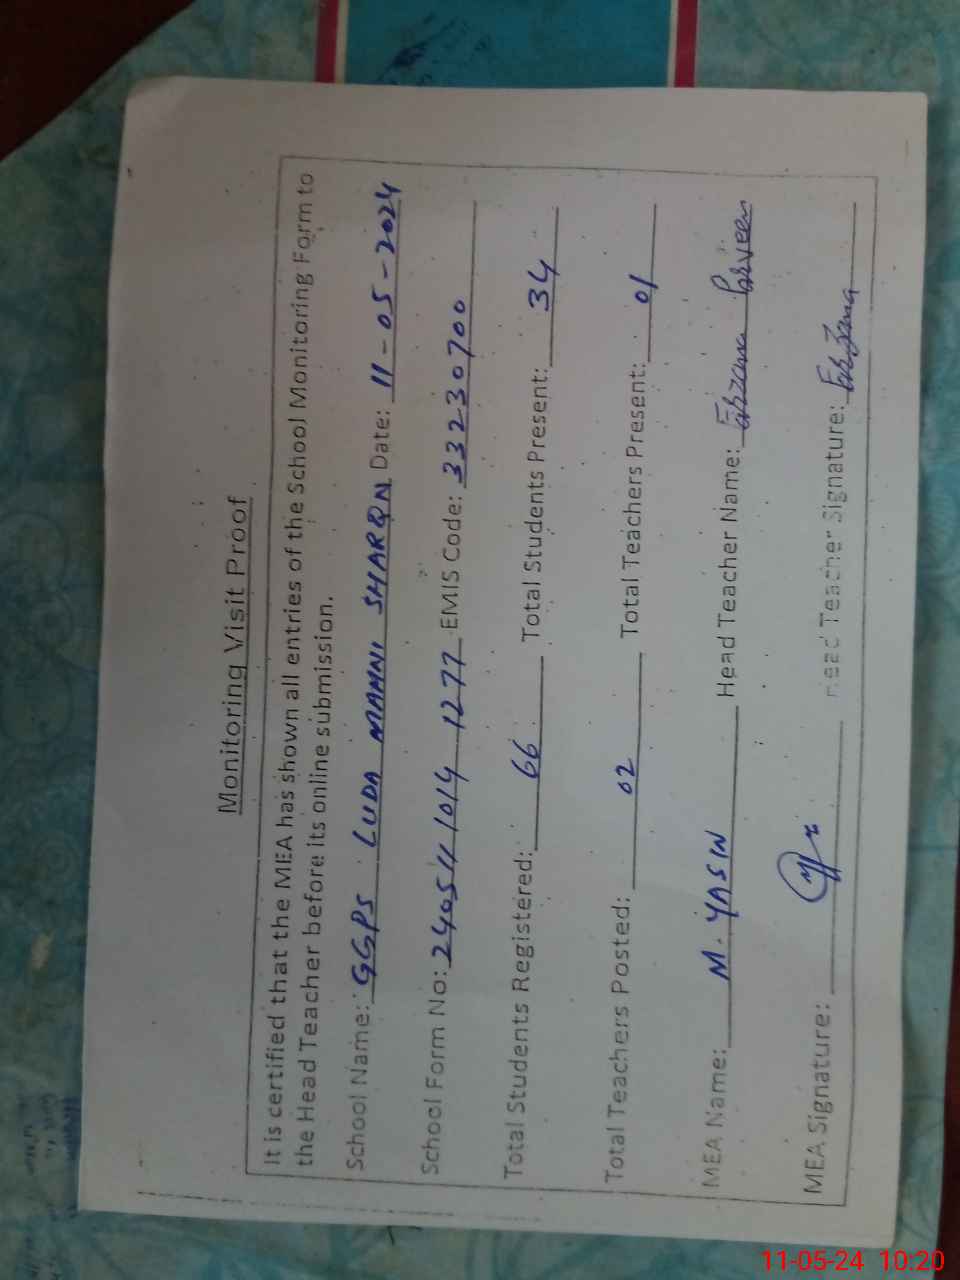 Monitoring Visit Proof
It is certified that the MEA has shown all entries of the School Monitoring Form to
the Head Teacher before its online submission.
School Name: GGPS LUDA MAHNI SHARQN Date: 11-05-2024
School Form No: 240511 1014 1277 EMIS Code: 33230700
Total Students Registered: 66 Total Students Present: 34
Total Teachers Posted: 02 Total Teachers Present: 01
MEA Name: M. YASIN Head Teacher Name: Farzana Parveen
MEA Signature: Head Teacher Signature: Farzana
11-05-24 10:20